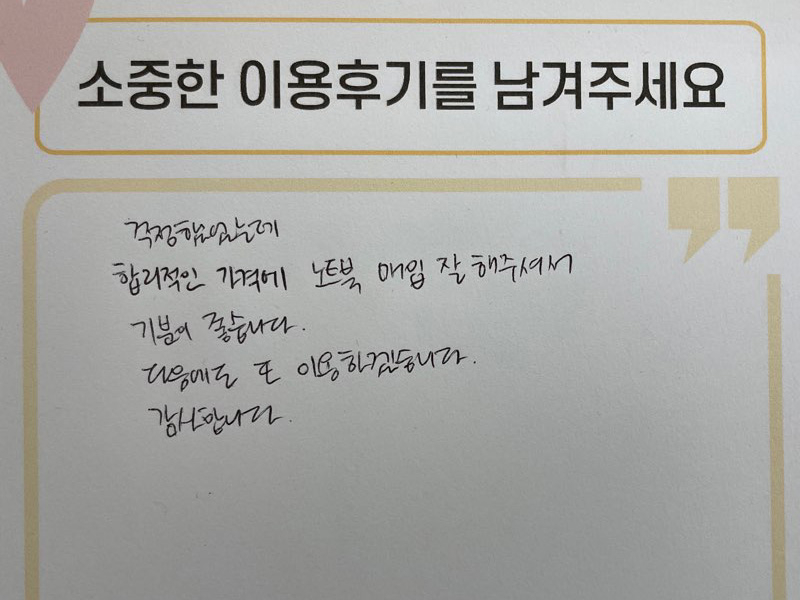 소중한 이용후기를 남겨주세요
걱정했었는데
합리적인 가격에 노트북 매입 잘 해주셔서
기분이 좋습니다.
다음에도 또 이용하겠습니다.
감사합니다.